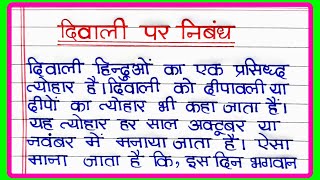 दिवाली पर निबंध
दिवाली हिन्दुओं का एक प्रसिध्द
त्योहार है।दिवाली को दीपावली या
दीपों का त्योहार भी कहा जाता है।
यह त्योहार हर साल अक्टूबर या
नवंबर में मनाया जाता है। ऐसा
माना जाता है कि, इस दिन भगवान